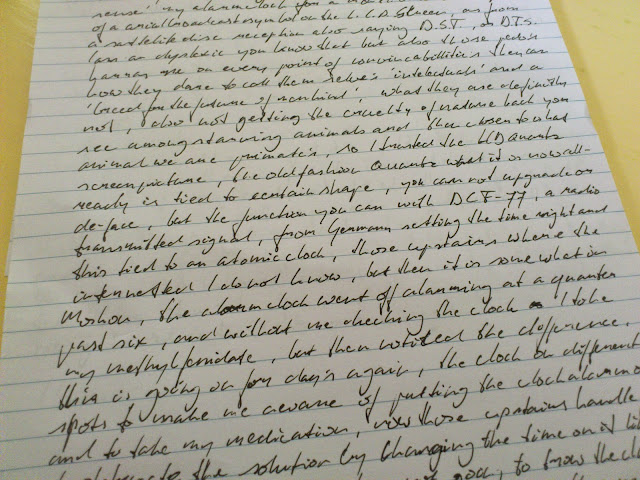 sense' my alarmclock you a
of a aerial broadcast symbol on the L.C.D. Screen, as from
a sattelite disc reception also saying D.S.T, on DTS.
I am an dyslexic you know that but also those pedos
harras me on every point of vulnerabillities they can
how they dare to call them selve's 'intelectuals' and a
'breed for the future of mankind', what they are definitly
not, also not getting the cruelty of nature back you
see among starving animals and the closest to what
animal we are primate's, so I trusted the LCD quartz
screen picture, the old fashion quartz what it is now all-
ready is tied to certain shape, you can not upgrade or
de-face, but the function you can with DCF-77, a radio
transmitted signal, from Germany setting the time right and
this tied to an atomic clock, those upstairs where the
intended I do not know, but then it is somewhat in
the alarmclock went of alarming at a quarter
past six, and without me checking the clock I take
my methylfenidate, but then notised the difference,
this is going on for day's again, the clock on different
spots to make me aware of putting the clock alarm on
and to take my medication, now those upstairs handle
the solution by changing the time on it
to throw the clock